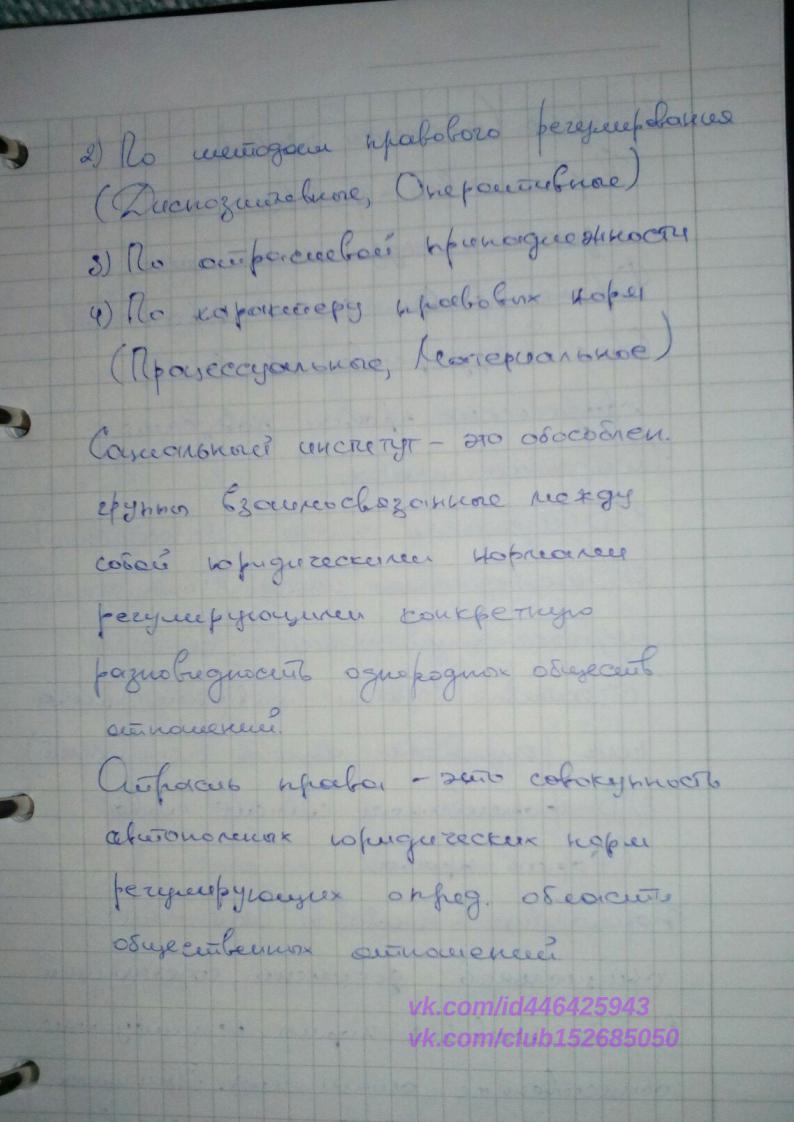 2) По методам правового регулирования
(Диспозитивные, Оперативные)
3) По отраслевой принадлежности
4) По характеру правовых норм
(Процессуальные, Материальные)
Социальный институт - это обособлен.
группы взаимосвязанные между
собой юридическими нормами
регулирующими конкретную
разновидность однородных обществ
отношений.
Отрасль права - это совокупность
автономных юридических норм
регулирующих опред. область
общественных отношений
vk.com/id446425943
vk.com/club152685050